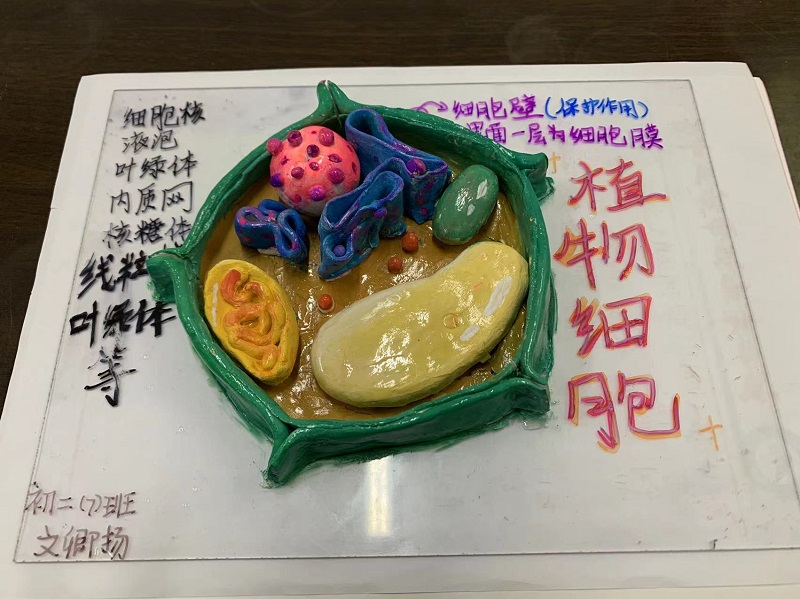 细胞核
液泡
叶绿体
内质网
核糖体
线粒
叶绿体
等
细胞壁(保护作用)
里面一层为细胞膜
植
物
细
胞
初二(7)班
文卿扬